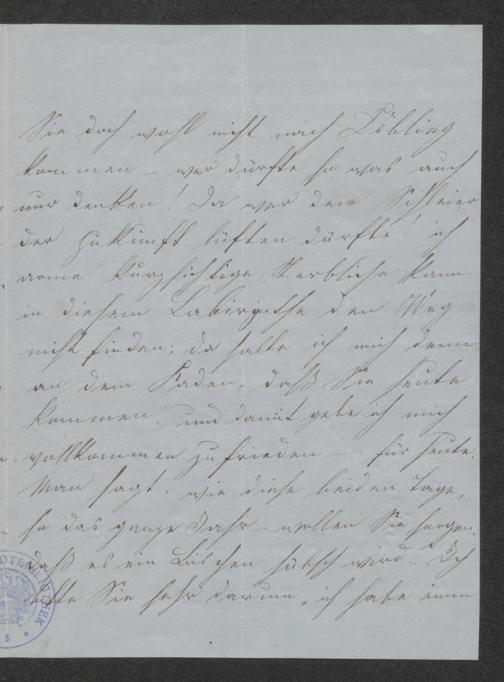 Sie doch wohl nicht nach Döbling
kommen – wer dürfte so was auch
nur denken! Ja wer den Schleier
der Zukunft lüften dürfte! ich
arme kurzsichtige Sterbliche kann
in diesem Labirinthe den Weg
nicht finden; da halte ich mich denn
an dem Faden, daß Sie heute
kommen, und damit gebe ich mich
vollkommen zufrieden – für heute.
Man sagt, wie diese beiden Tage,
so das ganze Jahr – wollen Sie sorgen,
daß es ein bischen hübsch wird. Ich
bitte Sie sehr darum, ich habe einen